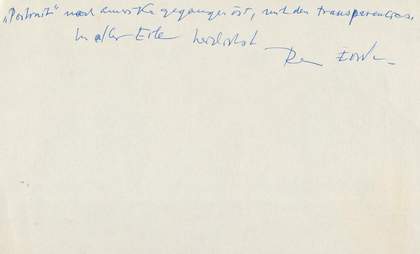 "Portrait" nach Amerika gegangen ist, mit den transparencies.
In aller Eile herzlichst